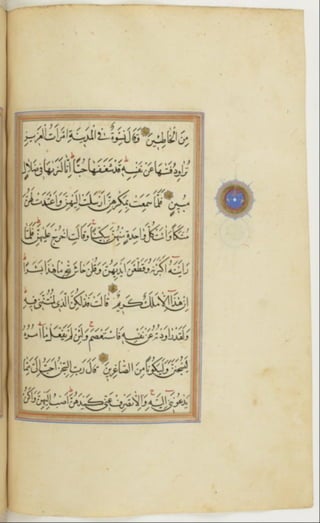 مِنَ الْخَاطِئِينَ وَقَالَ نِسْوَةٌ فِي الْمَدِينَةِ امْرَأَتُ الْعَزِيزِ
تُرَاوِدُ فَتَاهَا عَنْ نَفْسِهِ قَدْ شَغَفَهَا حُبًّا إِنَّا لَنَرَاهَا فِي ضَلَالٍ
مُبِينٍ فَلَمَّا سَمِعَتْ بِمَكْرِهِنَّ أَرْسَلَتْ إِلَيْهِنَّ وَأَعْتَدَتْ لَهُنَّ
مُتَّكَأً وَآتَتْ كُلَّ وَاحِدَةٍ مِنْهُنَّ سِكِّينًا وَقَالَتِ اخْرُجْ عَلَيْهِنَّ فَلَمَّا
رَأَيْنَهُ أَكْبَرْنَهُ وَقَطَّعْنَ أَيْدِيَهُنَّ وَقُلْنَ حَاشَ لِلَّهِ مَا هَذَا بَشَرًا
إِنْ هَذَا إِلَّا مَلَكٌ كَرِيمٌ قَالَتْ فَذَلِكُنَّ الَّذِي لُمْتُنَّنِي فِيهِ
وَلَقَدْ رَاوَدْتُهُ عَنْ نَفْسِهِ فَاسْتَعْصَمَ وَلَئِنْ لَمْ يَفْعَلْ مَا آمُرُهُ
لَيُسْجَنَنَّ وَلَيَكُونًا مِنَ الصَّاغِرِينَ قَالَ رَبِّ السِّجْنُ أَحَبُّ إِلَيَّ مِمَّا
يَدْعُونَنِي إِلَيْهِ وَإِلَّا تَصْرِفْ عَنِّي كَيْدَهُنَّ أَصْبُ إِلَيْهِنَّ وَأَكُنْ